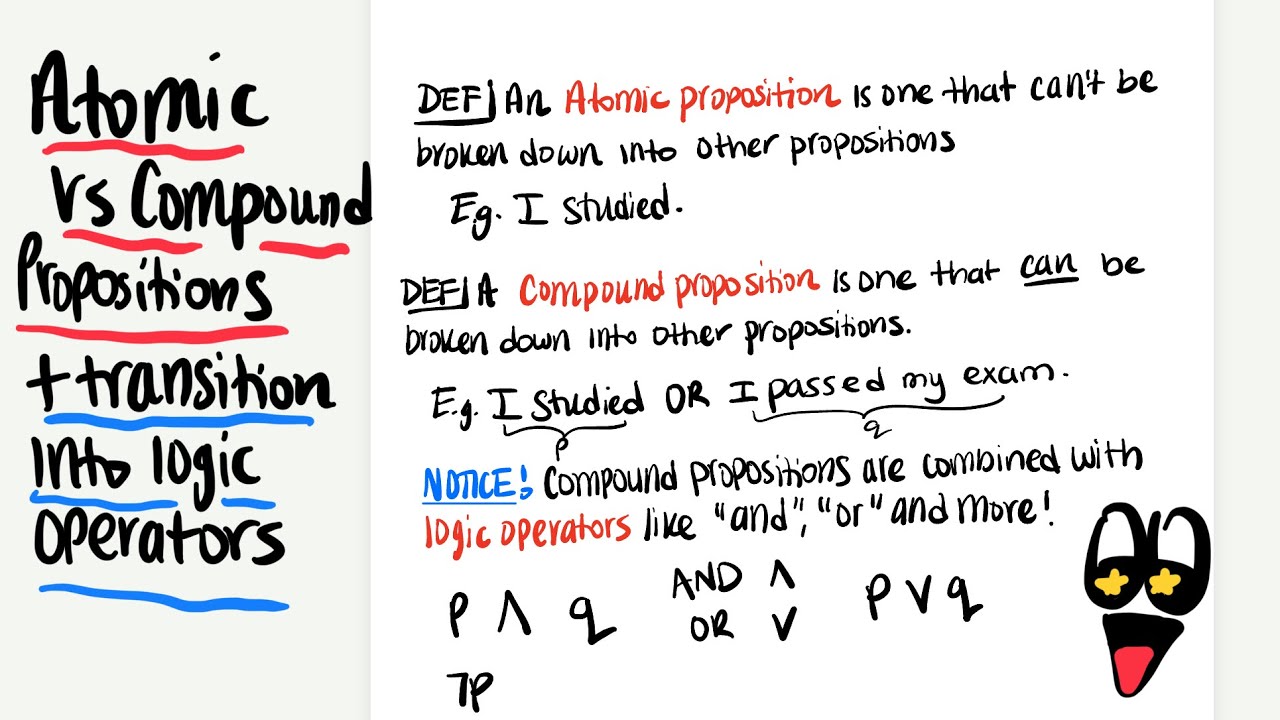 Atomic
vs Compound
Propositions
+ transition
Into logic
operators
DEF) An Atomic proposition is one that can't be
broken down into other propositions
Eg. I studied.
DEF) A Compound proposition is one that can be
broken down into other propositions.
E.g. I studied OR I passed my exam.
p q
NOTICE! Compound propositions are combined with
logic operators like "and", "or" and more!
p ∧ q AND ∧ p ∨ q
OR ∨
¬p